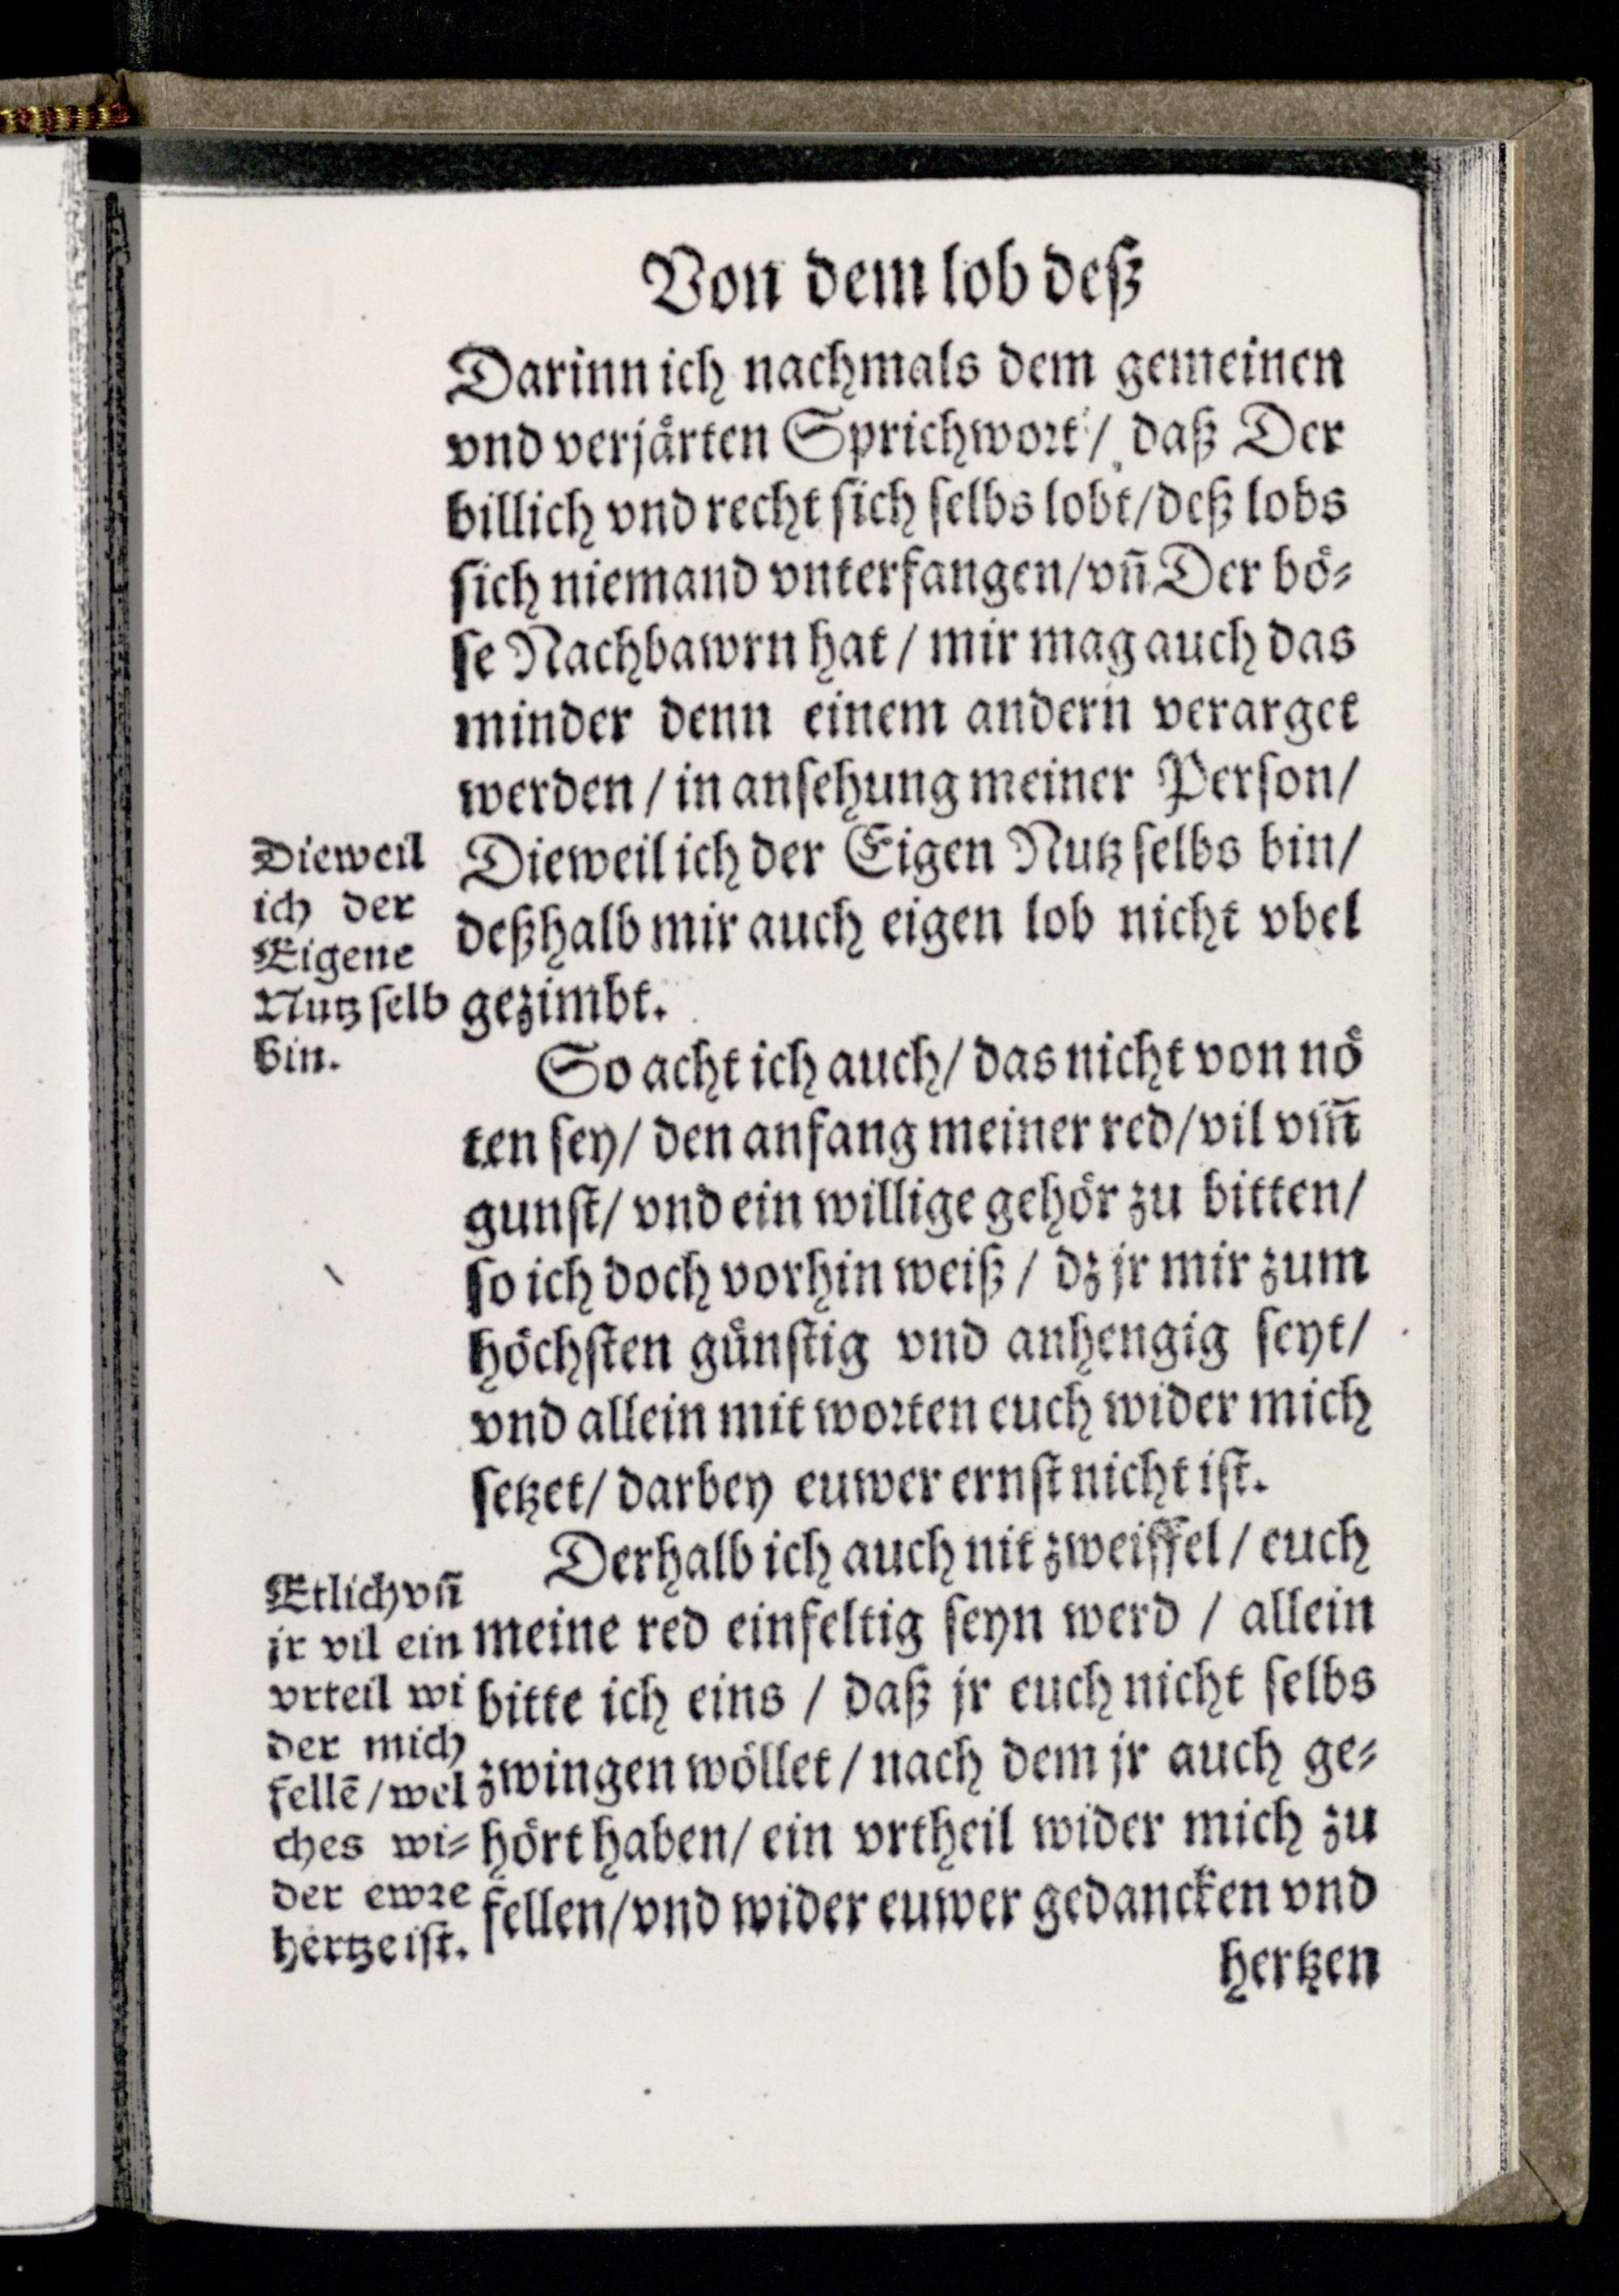 Von dem lob deß
Darinn ich nachmals dem gemeinen
vnd verjaͤrten Sprichwort / daß Der
billich vnd recht sich selbs lobt / deß lobs
sich niemand vnterfangen / vñ Der boͤ-
se Nachbawrn hat / mir mag auch das
minder denn einem andern verarget
werden / in ansehung meiner Person /
Dieweil ich der Eigen Nutz selbs bin /
deßhalb mir auch eigen lob nicht vbel
gezimbt.
Dieweil
ich der
Eigene
Nutz selb
bin.
So acht ich auch / das nicht von noͤ
ten sey / den anfang meiner red / vil vm̃
gunst / vnd ein willige gehoͤr zu bitten /
so ich doch vorhin weiß / dz jr mir zum
hoͤchsten guͤnstig vnd anhengig seyt /
vnd allein mit worten euch wider mich
setzet / darbey euwer ernst nicht ist.
Derhalb ich auch nit zweiffel / euch
meine red einfeltig seyn werd / allein
bitte ich eins / daß jr euch nicht selbs
zwingen woͤllet / nach dem jr auch ge-
hoͤrt haben / ein vrtheil wider mich zu
fellen / vnd wider euwer gedancken vnd
Etlich vñ
jr vil ein
vrteil wi
der mich
fellē / wel
ches wi-
der ewre
hertze ist.
hertzen